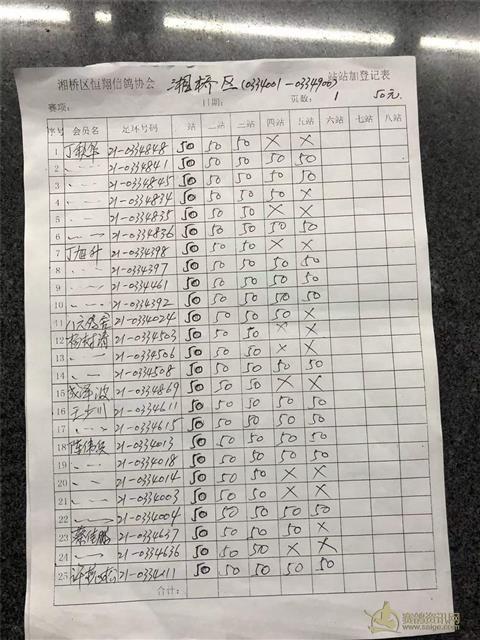 湘桥区恒翔信鸽协会 湘桥区(0334001-0334900) 站站加登记表
赛项: 日期: 页数: 1 50元
序号 会员名 足环号码 一站 二站 三站 四站 五站 六站 七站 八站
1 丁秋华 21-0334848 50 50 50 × ×
2 21-0334841 50 50 50 50 50
3 21-0334845 50 50 50 50 50
4 21-0334834 50 50 50 50 ×
5 21-0334835 50 50 50 × ×
6 21-0334836 50 50 50 50 50
7 丁旭升 21-0334398 50 50 50 × ×
8 21-0334397 50 50 50 50 50
9 21-0334461 50 50 50 50 50
10 21-0334392 50 50 50 50 50
11 21-0334024 50 50 50 50 ×
12 21-0334503 50 50 50 × ×
13 21-0334506 50 50 50 × ×
14 21-0334508 50 50 50 50 50
15 21-0334869 50 50 50 × ×
16 21-0334611 50 50 50 50 50
17 21-0334615 50 50 50 50 50
18 21-0334013 50 50 50 50 50
19 21-0334018 50 50 50 50 50
20 21-0334014 50 50 50 × ×
21 21-0334003 50 50 50 × ×
22 21-0334004 50 50 50 50 50
23 21-0334637 50 50 50 50 ×
24 21-0334636 50 50 50 × ×
25 21-0334211 50 50 50 50 50
合计:
赛鸽资讯网
www.saige.com